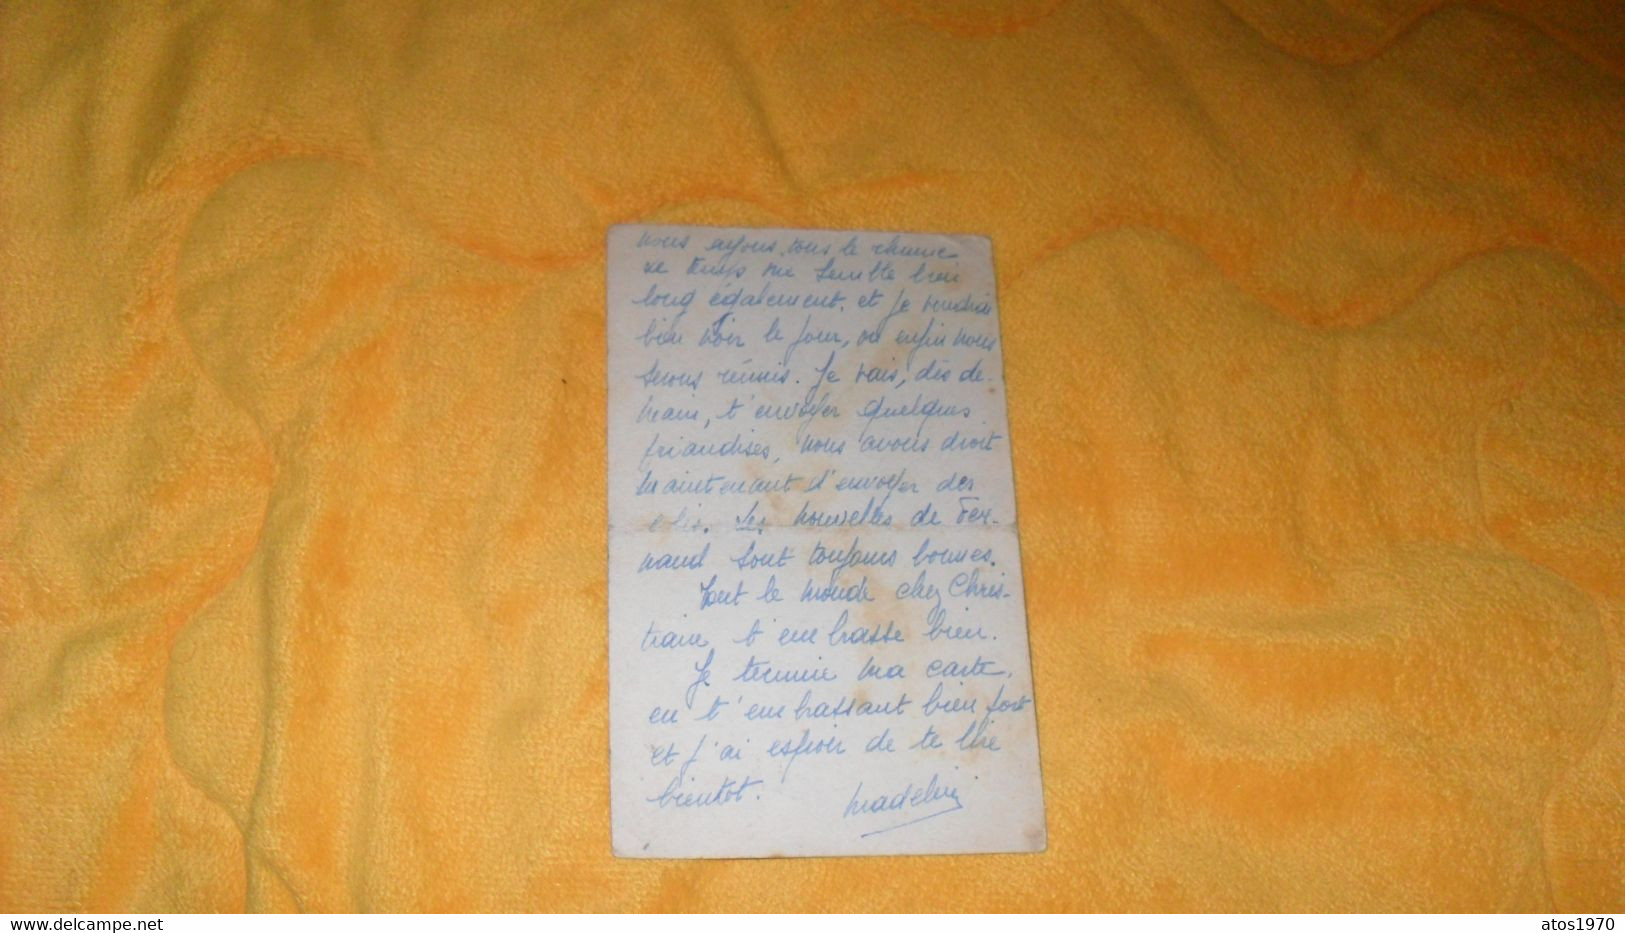 nous ayons tous la chance
Le temps me semble bien
long également. et je voudrais
bien voir le jour, ou enfin nous
serons réunis. Je vais, dès de-
main, t'envoyer quelques
friandises, nous avons droit
maintenant d'envoyer des
colis. Les nouvelles de Fer-
nand sont toujours bonnes.
Tout le monde chez Chris-
tiane t'embrasse bien.
Je termine ma carte,
en t'embrassant bien fort
et j'ai espoir de te lire
bientot. Madeleine
www.delcampe.net
atos1970